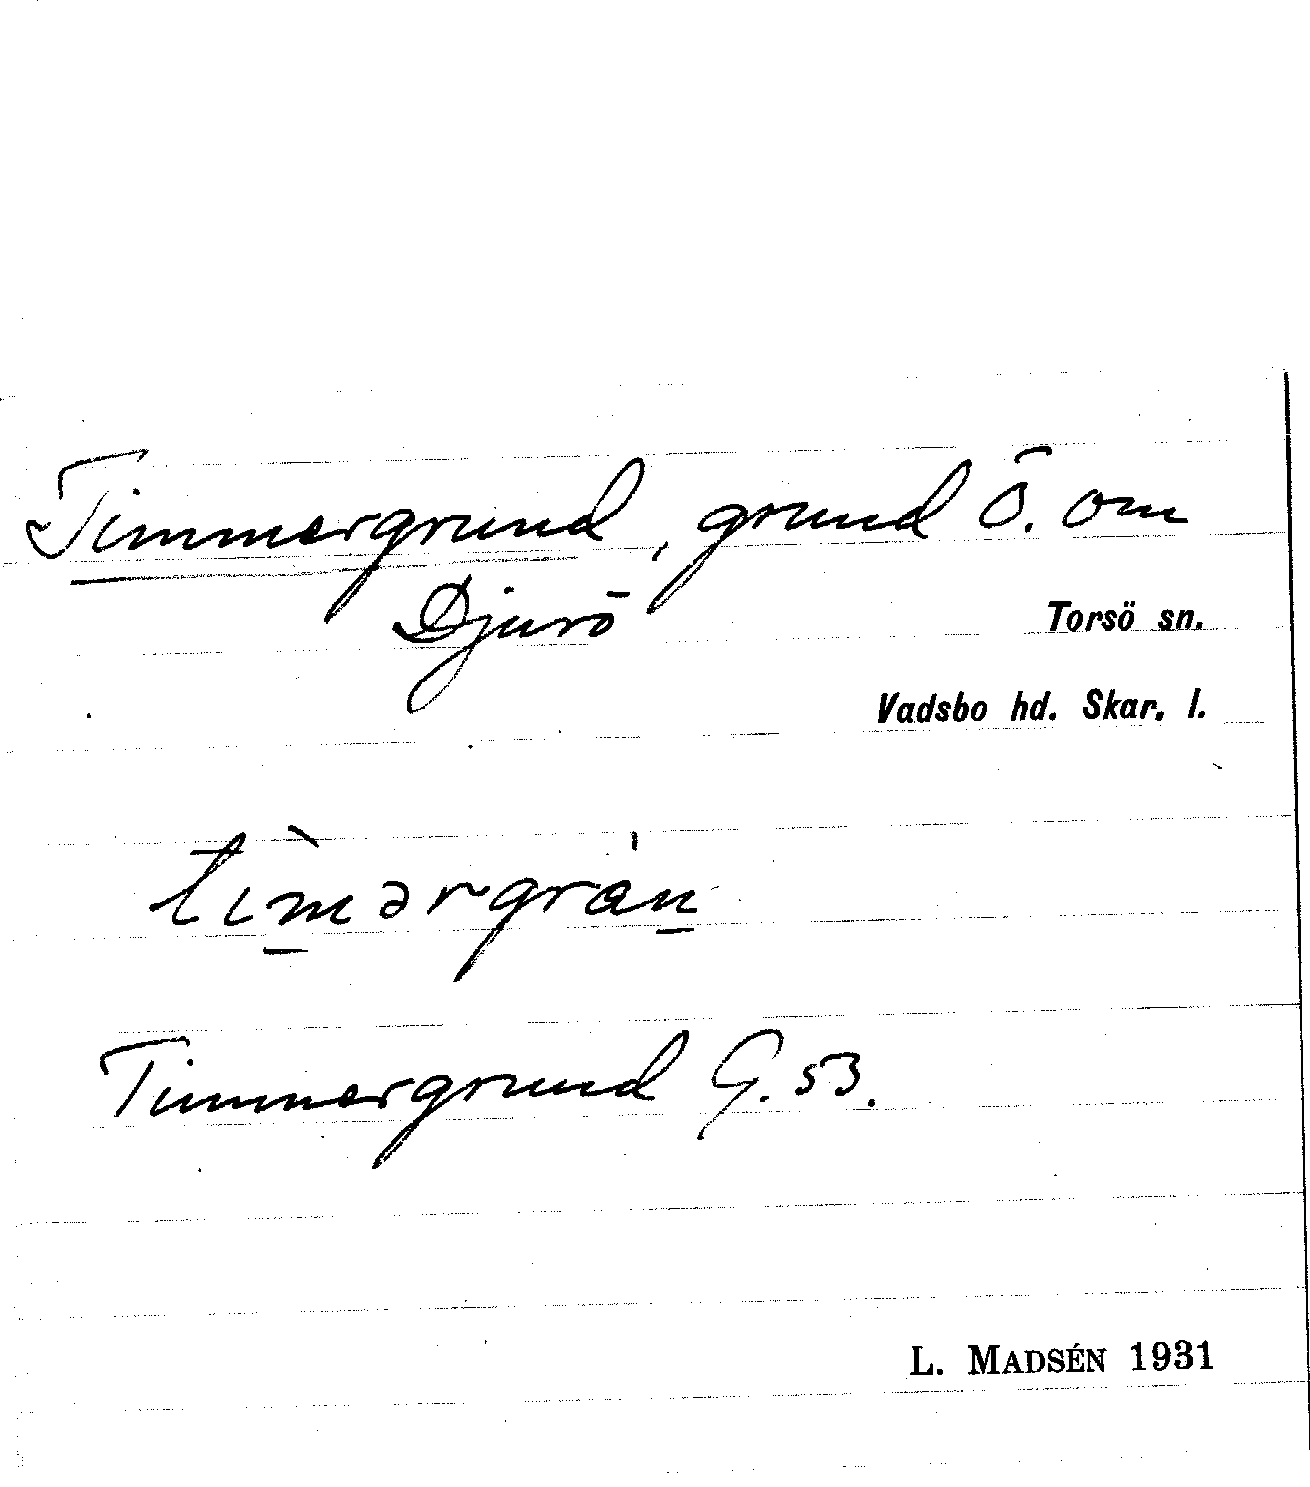 Timmergrund, grund Ö. om
Djurö
Torsö sn.
Vadsbo hd. Skar. l.
tìm̲ərgrán̲
Timmergrund G. 53.
L. MADSÉN 1931